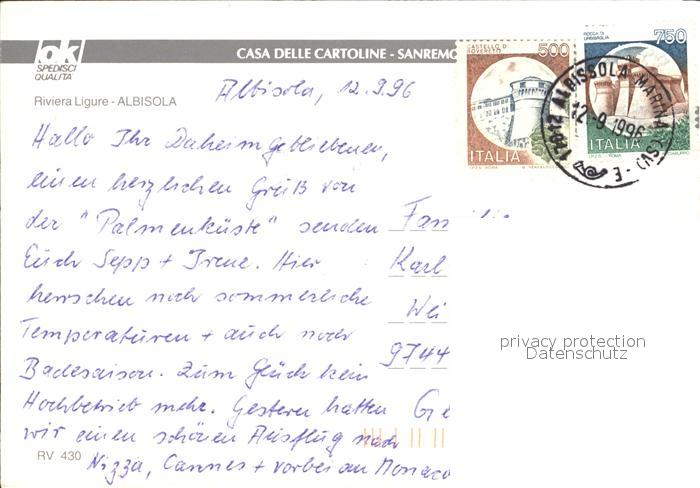 ok
SPEDISCI
QUALITÀ
CASA DELLE CARTOLINE - SANREMO
CASTELLO DI
ROVERETO
500
ITALIA
ROCCA DI
URBISAGLIA
750
ITALIA
17012 ALBISSOLA MARINA (SV) - E
12-9-1996
Riviera Ligure - ALBISOLA
Albisola, 12.9.96
Hallo Ihr Daheimgebliebenen,
einen herzlichen Gruß von
der "Palmenküste" senden
Euch Sepp + Irene. Hier
herrschen noch sommerliche
Temperaturen + auch noch
Badesaison. Zum Glück kein
Hochbetrieb mehr. Gestern hatten
wir einen schönen Ausflug nach
Nizza, Cannes + vorbei an Monaco
Fam
Karl
Wei
9744
Ge
RV 430
privacy protection
Datenschutz